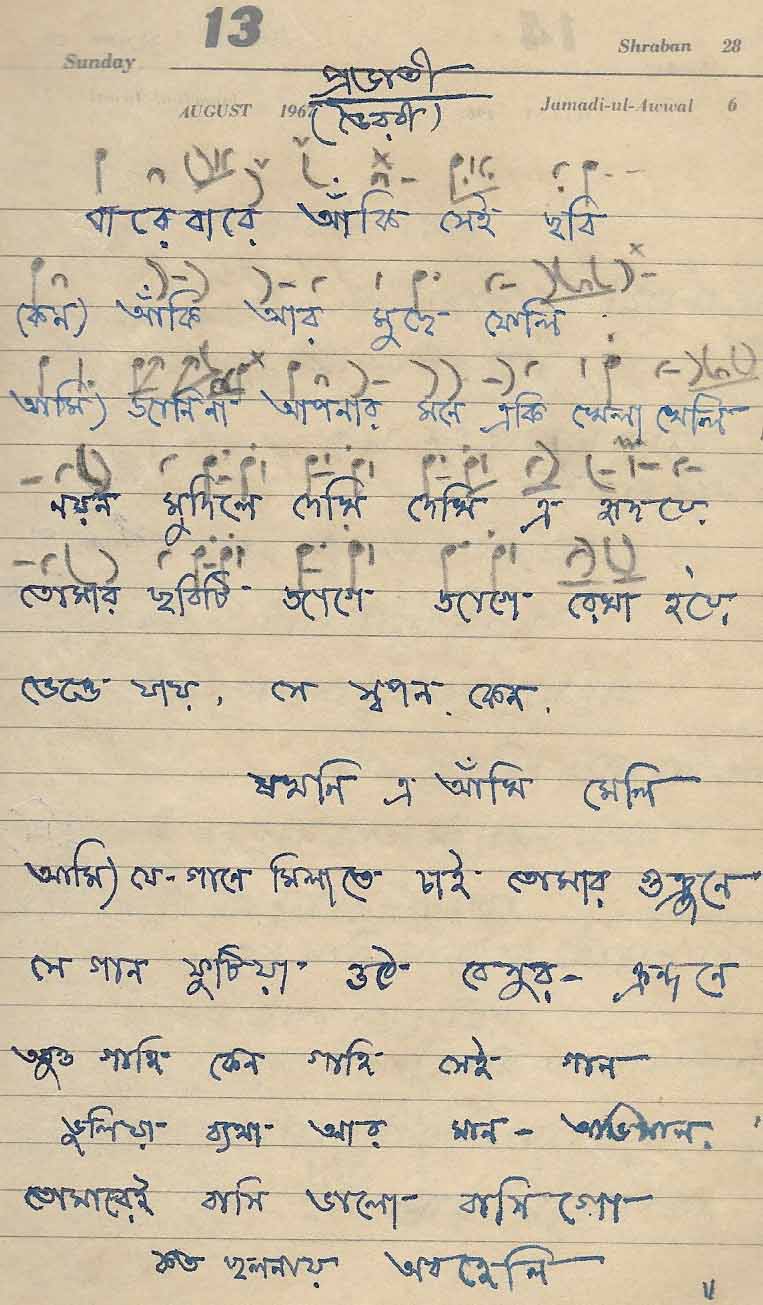 13
Shraban 28
Sunday
প্রভাতী
AUGUST 1967 Jumadi-ul-Awwal 6
(ভৈরবী)
বারেবারে আঁকি সেই ছবি
কেন) আঁকি আর মুছে ফেলি
আমি) জানিনা আপনার মনে একি খেলা খেলি
নয়ন মুদিলে দেখি দেখি এ হৃদতে
তোমার ছবিটি জাগে জাগে রেখা হতে
ভেঙ্গে যায়, সে স্বপন কেন,
যখনি এ আঁখি মেলি
আমি) যে-গানে মিলাতে চাই তোমার গুঞ্জনে
সে গান ফুটিয়া ওঠে বেসুর- ক্রন্দনে
তবুও গাহি কেন গাহি সেই গান
ভুলিয়া ব্যথা আর মান - অভিমান,
তোমারেই বাসি ভালো বাসি গো
কত ছলনায় অবহেলি ॥